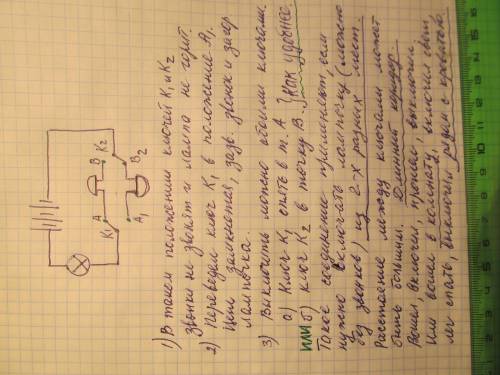 К₁
А
А₁
В
К₂
В₂
1) В таком положении ключей К₁ и К₂
звонки не звонят и лампа не горит.
2) Переведем ключ К₁ в положение А₁.
Цепь замкнется, зазв. звонок и загор
лампочка.
3) Выключить можно обоими ключами.
а) Ключ К₁ опять в т. А } как удобнее
или б) ключ К₂ в точку В.
Такое соединение применяют, если
нужно включать лампочку (можно
без звонков) из 2-х разных мест.
Расстояние между ключами может
быть большим. Длинный коридор
Вошел, включил, прошел, выключил
Или вошел в комнату, включил свет,
лег спать, выключил рядом с кроватью.